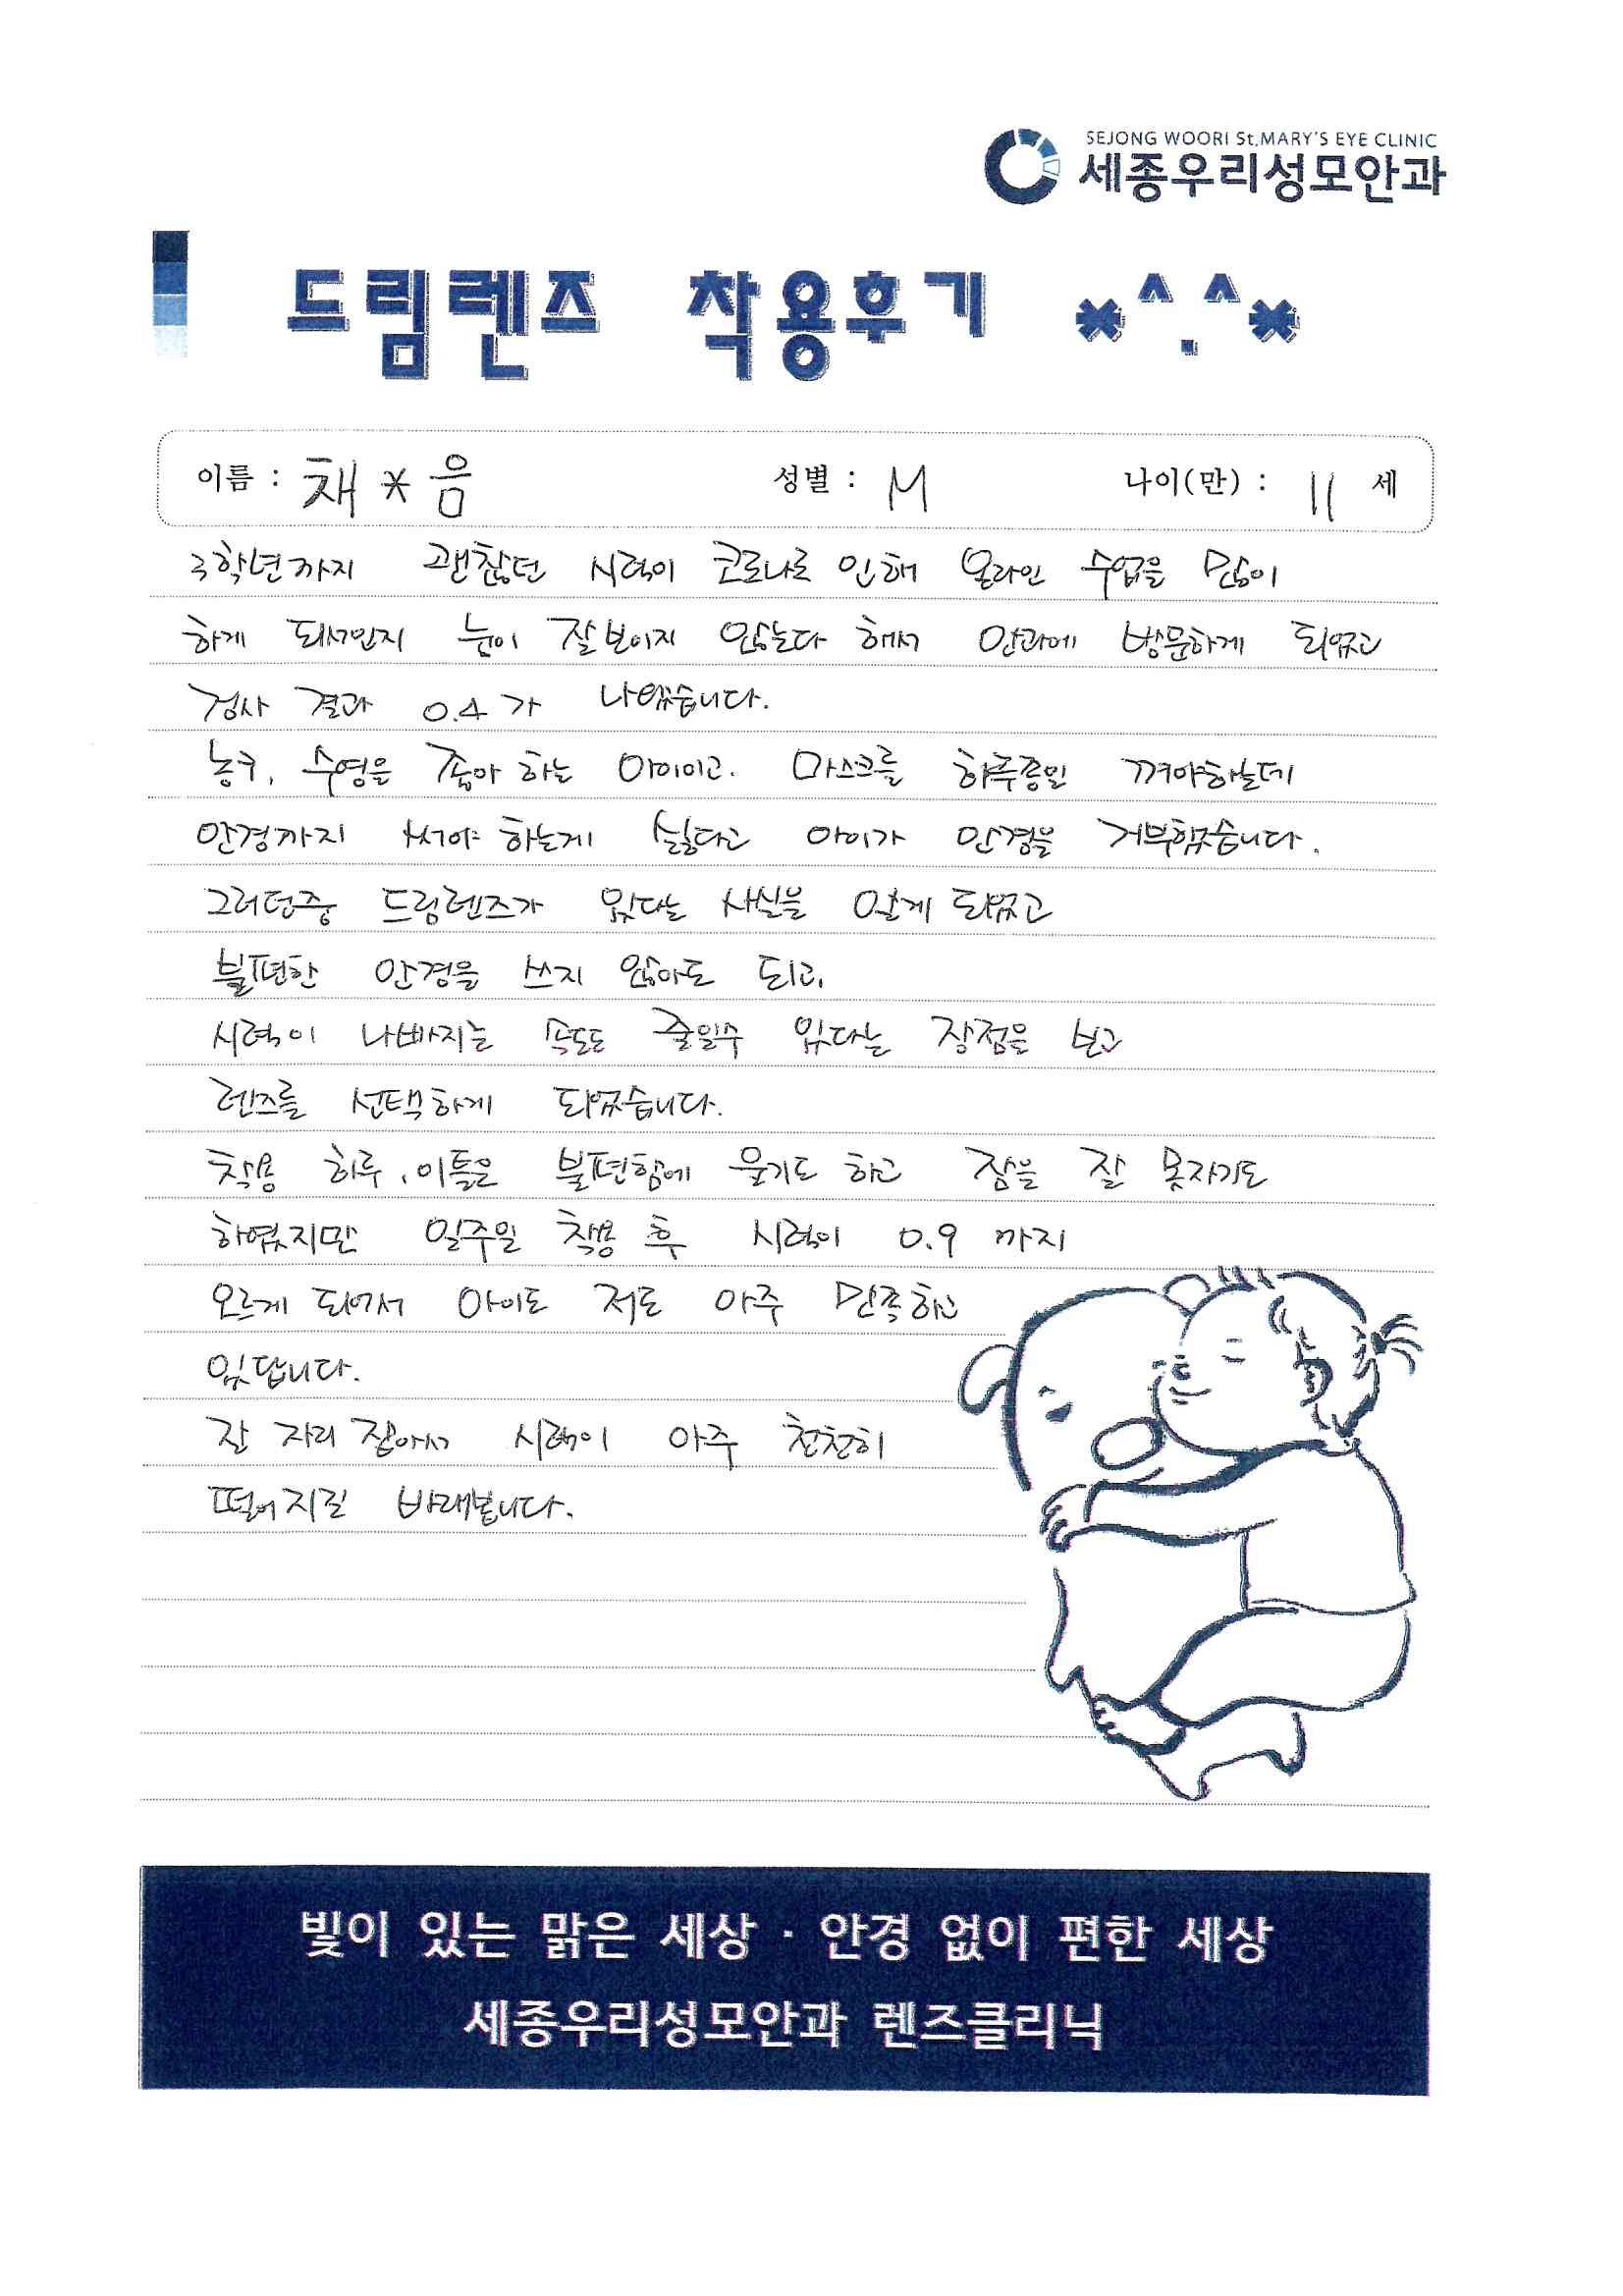 SEJONG WOORI St.MARY'S EYE CLINIC
세종우리성모안과
드림렌즈 착용후기 *^.^*
이름 : 채*음 성별 : M 나이(만) : 11 세
3학년까지 괜찮던 시력이 코로나로 인해 온라인 수업을 많이
하게 되서인지 눈이 잘보이지 않는다 해서 안과에 방문하게 되었고
검사 결과 0.4가 나왔습니다.
농구, 수영을 좋아 하는 아이이고. 마스크를 하루종일 껴야하는데
안경까지 써야 하는게 싫다고 아이가 안경을 거부했습니다.
그러던중 드림렌즈가 있다는 사실을 알게 되었고
불편한 안경을 쓰지 않아도 되고,
시력이 나빠지는 속도도 줄일수 있다는 장점을 보고
렌즈를 선택하게 되었습니다.
착용 하루, 이틀은 불편함에 울기도 하고 잠을 잘 못자기도
하였지만 일주일 착용 후 시력이 0.9 까지
오르게 되어서 아이도 저도 아주 만족하고
있답니다.
잘 자리 잡아서 시력이 아주 천천히
떨어지길 바래봅니다.
빛이 있는 맑은 세상 · 안경 없이 편한 세상
세종우리성모안과 렌즈클리닉